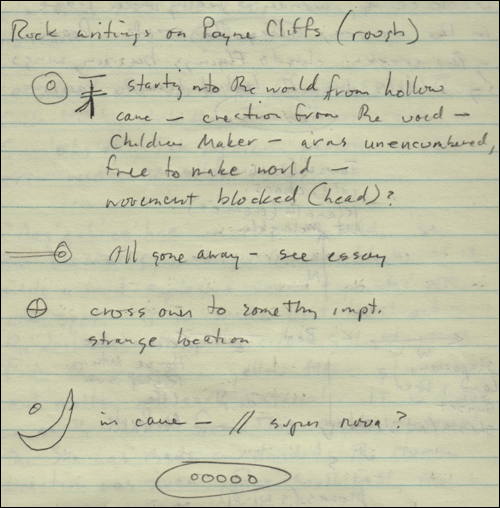 Rock writings on Payne Cliffs (rough)
starting into the world from hollow
cane – creation from the void –
Children Maker – arms unencumbered,
free to make world –
movement blocked (head)?
All gone away – see essay
cross over to somethg impt.
strange location
in cane – // super nova?